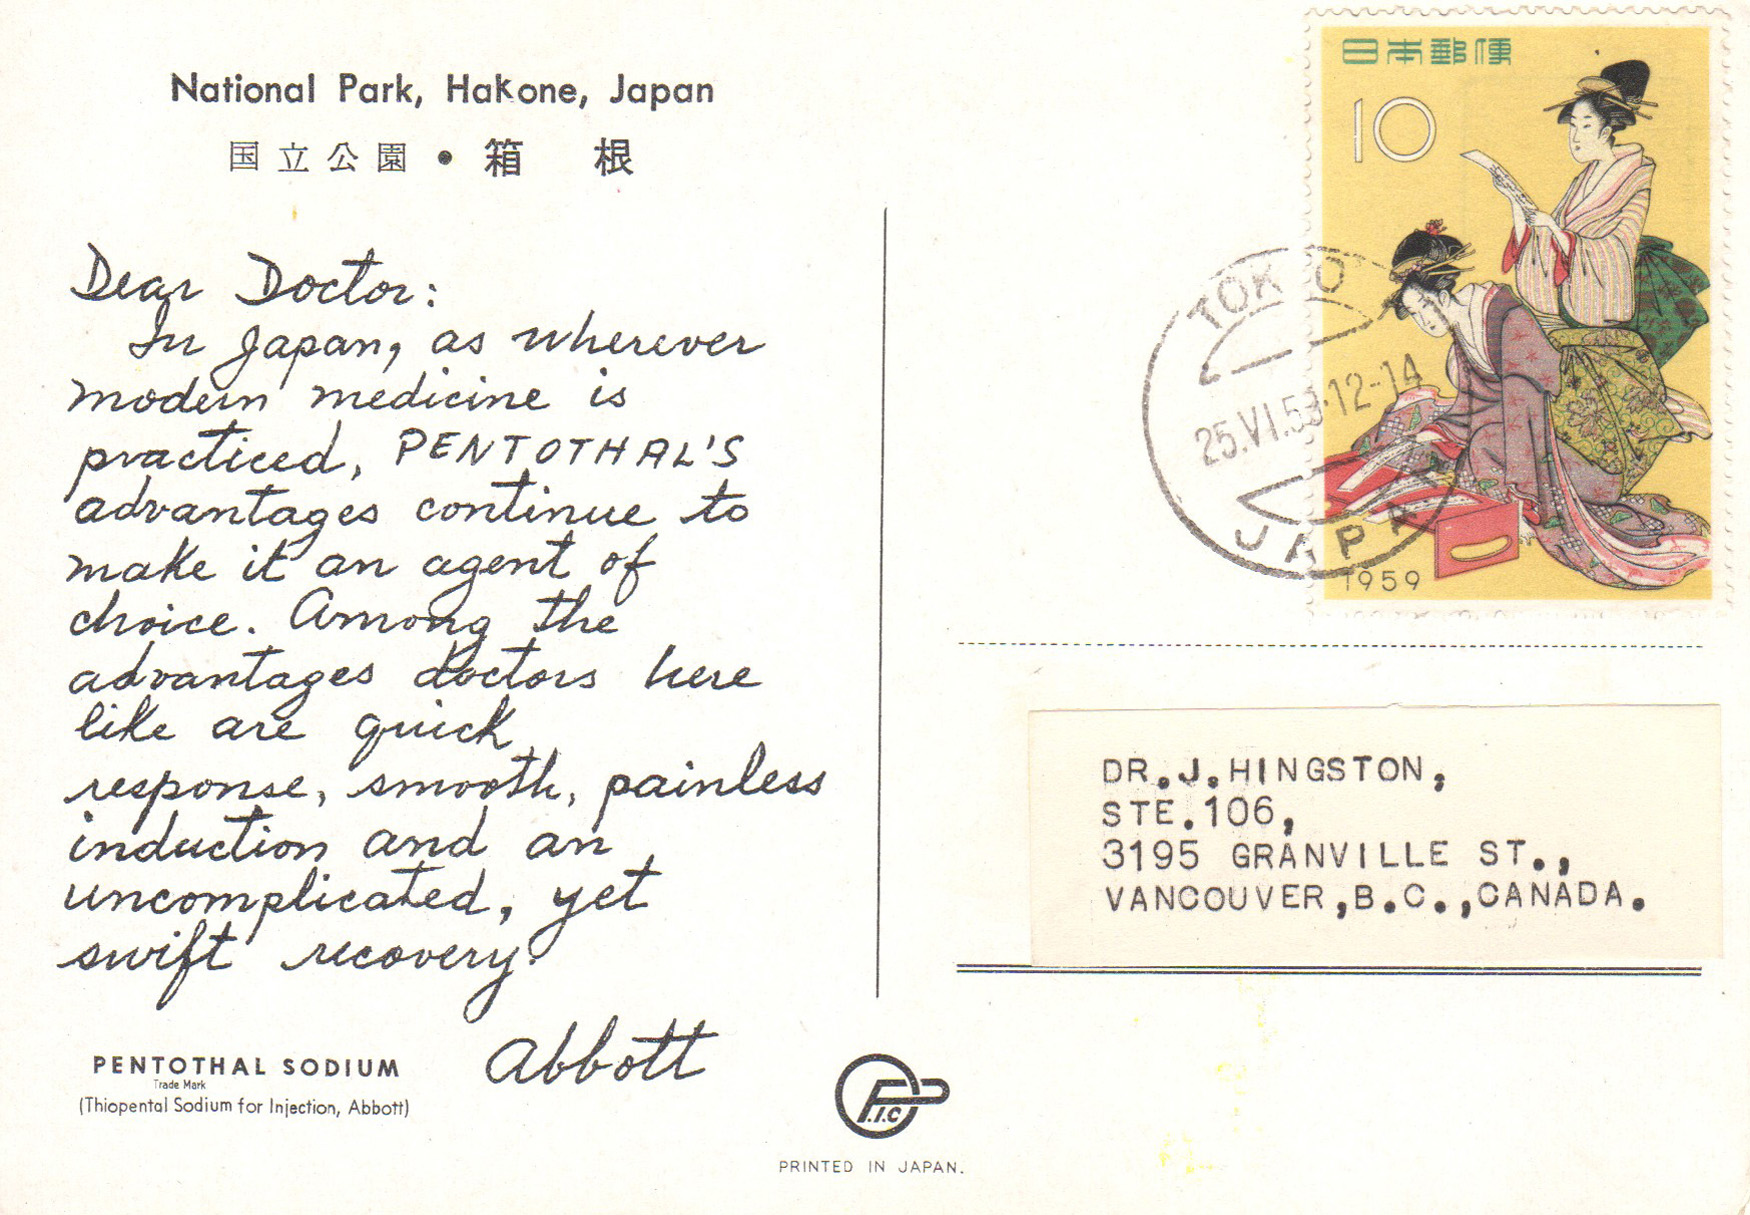 National Park, Hakone, Japan
国立公園・箱根
Dear Doctor:
In Japan, as wherever
modern medicine is
practiced, PENTOTHAL'S
advantages continue to
make it an agent of
choice. Among the
advantages doctors here
like are quick
response, smooth, painless
induction and an
uncomplicated, yet
swift recovery.
Abbott
PENTOTHAL SODIUM
Trade Mark
(Thiopental Sodium for Injection, Abbott)
P.I.C
PRINTED IN JAPAN.
日本郵便
10
1959
TOKYO
25.VI.59.12-14
JAPAN
DR.J.HINGSTON,
STE.106,
3195 GRANVILLE ST.,
VANCOUVER,B.C.,CANADA.